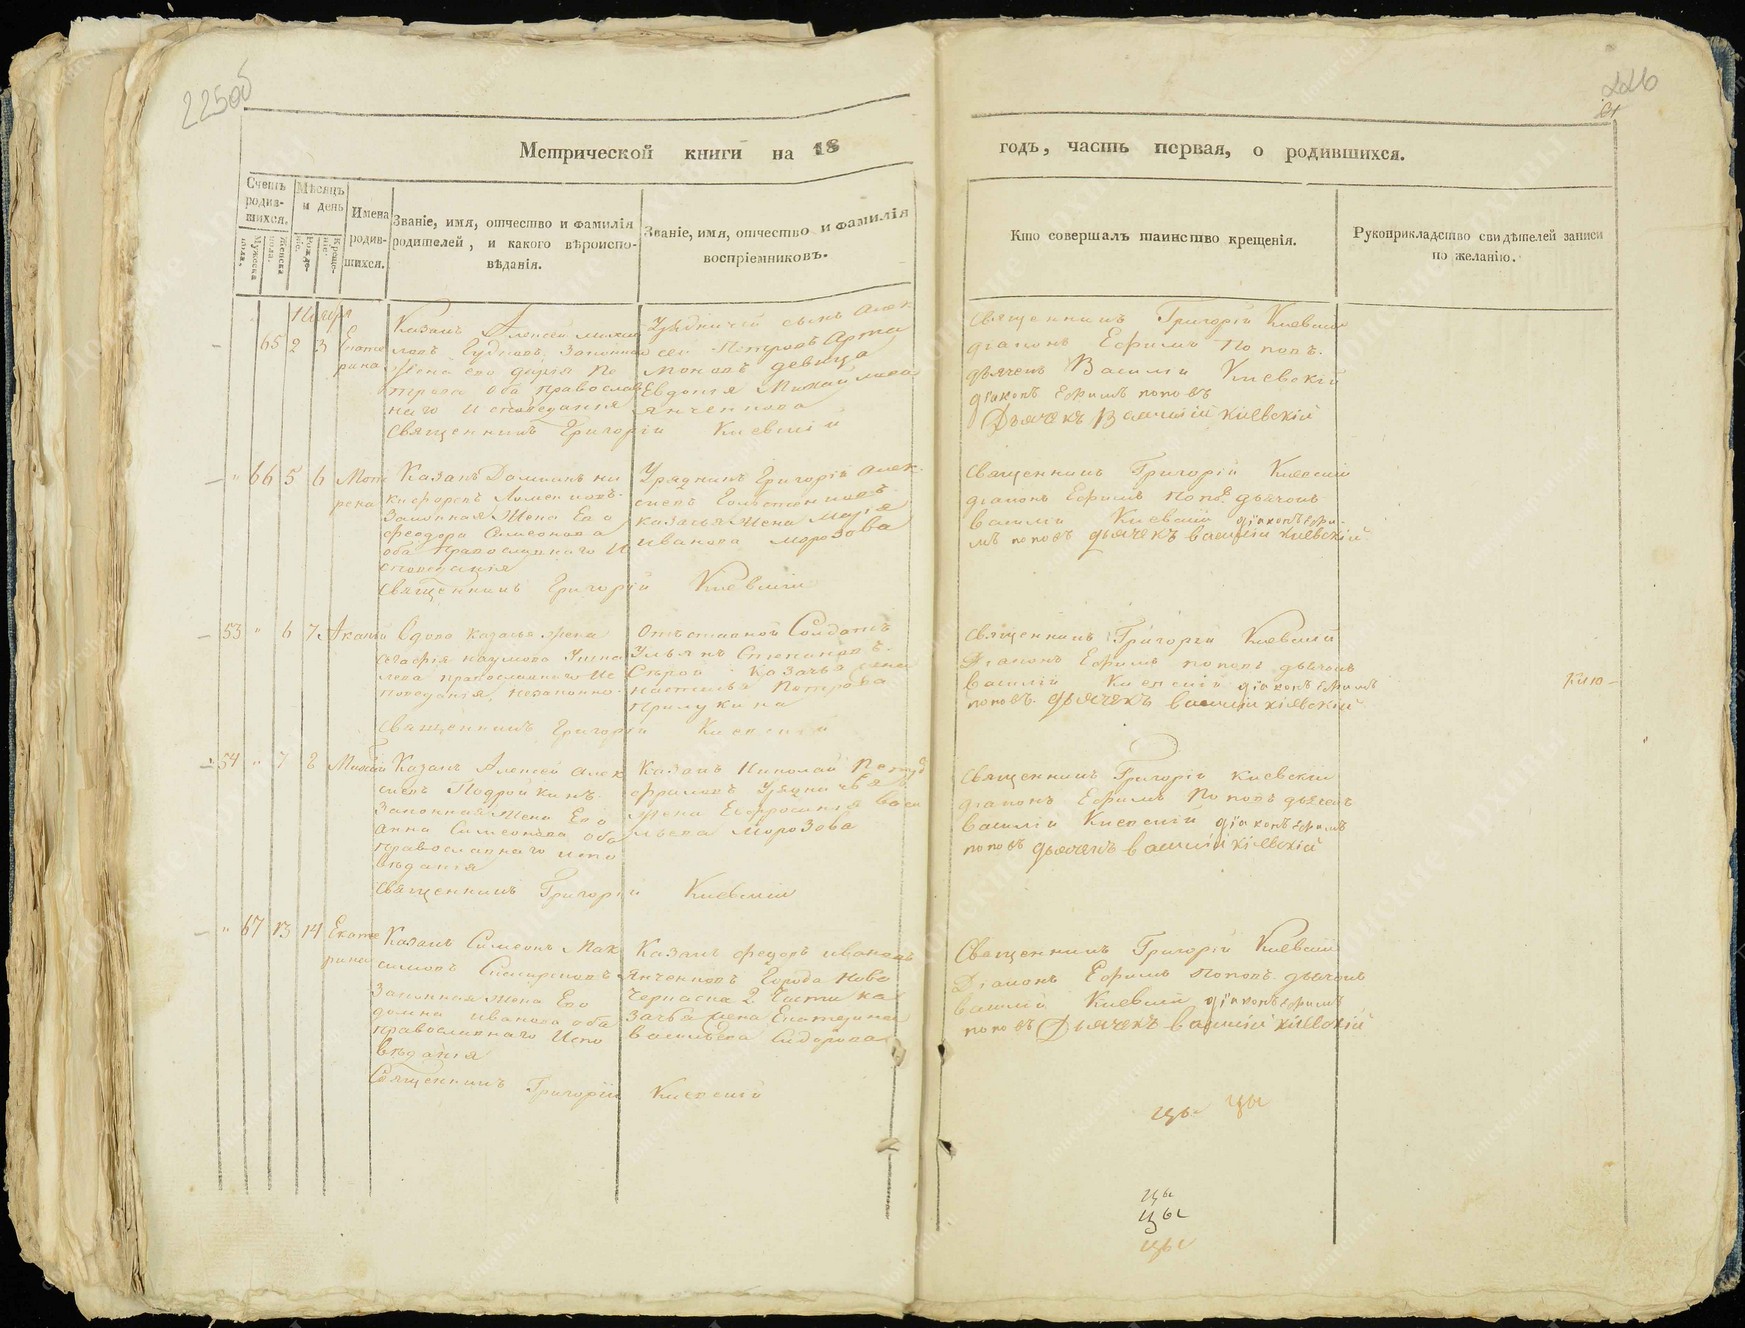 225об
226
Метрической книги на 18
годъ, часть первая, о родившихся.
Счетъ родив-
шихся.
Мужеска
пола.
Женска
пола.
Мѣсяцъ
и день
Рожде-
ніе.
Креще-
ніе.
Имена
родив-
шихся.
Званіе, имя, отчество и фамилія
родителей, и какого вѣроиспо-
вѣданія.
Званіе, имя, отчество и фамилія
воспріемниковъ.
Кто совершалъ таинство крещенія.
Рукоприкладство свидѣтелей записи
по желанію.
Ноября
65 2 3 Екате
рина
Казакъ Алексей Михаи
ловъ Законная
Жена его Дарія Пе
трова оба православ
наго исповедания
Священникъ Григорій Киевскій
сынъ Алек
сей Петровъ Арта
моновъ девица
Евдокія Михайлова
Янченкова
Священникъ Григорій Киевскій
діаконъ Ефимъ Поповъ.
дьячекъ Василій Киевскій
діаконъ Ефимъ поповъ
Дьячекъ Василій Киевскій
" 66 5 6 Мот
рена
Казакъ ни
кифоровъ
Законная Жена Его
феодора Симеонова
оба православнаго И
споведания
Священникъ Григорій Киевскій
Урядникъ Григорій Алек
сеевъ
казачья Жена Марія
Иванова Морозова
Священникъ Григорій Киевскій
діаконъ Ефимъ Попов дьячокъ
Василій Киевскій діаконъ Ефи-
мъ поповъ дьячекъ Василій Киевскій
53 " 6 7 Акакій
Вдова казачья жена
Агафья наумова
православнаго Ис
поведания, незаконно-
Священникъ Григорій Киевскій
Отъставной Солдатъ
Ульянъ Степановъ
Казачья жена
настасья Петрова
Прилукина
Священникъ Григорій Киевскій
Діаконъ Ефимъ поповъ дьячокъ
Василій Киевскій діаконъ Ефимъ
поповъ. дьячекъ Василій Кіевскій
54 " 7 8 Михаил
Казакъ Алексей Алек
сеевъ Подройкинъ.
Законная Жена Его
Анна Симеонова оба
православнаго испо
веданія
Священникъ Григорій Киевскій
Казакъ Николай Петров
жена Евфросинія Васи
льева Морозова
Священникъ Григорій Киевскій
діаконъ Ефимъ Поповъ дьячокъ
Василій Киевскій діаконъ Ефимъ
поповъ дьячекъ Василій Кіевскій
" 67 13 14 Екате
рина
Казакъ Симеонъ Мак
симовъ
Законная Жена Его
домна иванова оба
православнаго Испо
веданія
Священникъ Григорій Киевскій
Казакъ федоръ ивановъ
Янченковъ Города Ново
Черкаска 2 Части ка
зачья жена Екатерина
Васильева Сидорова
Священникъ Григорій Киевскій
Діаконъ Ефимъ Поповъ дьячокъ
Василій Киевскій діаконъ Ефимъ
поповъ Дьячекъ Василій Киевскій
цы цы
цы
цы
цы